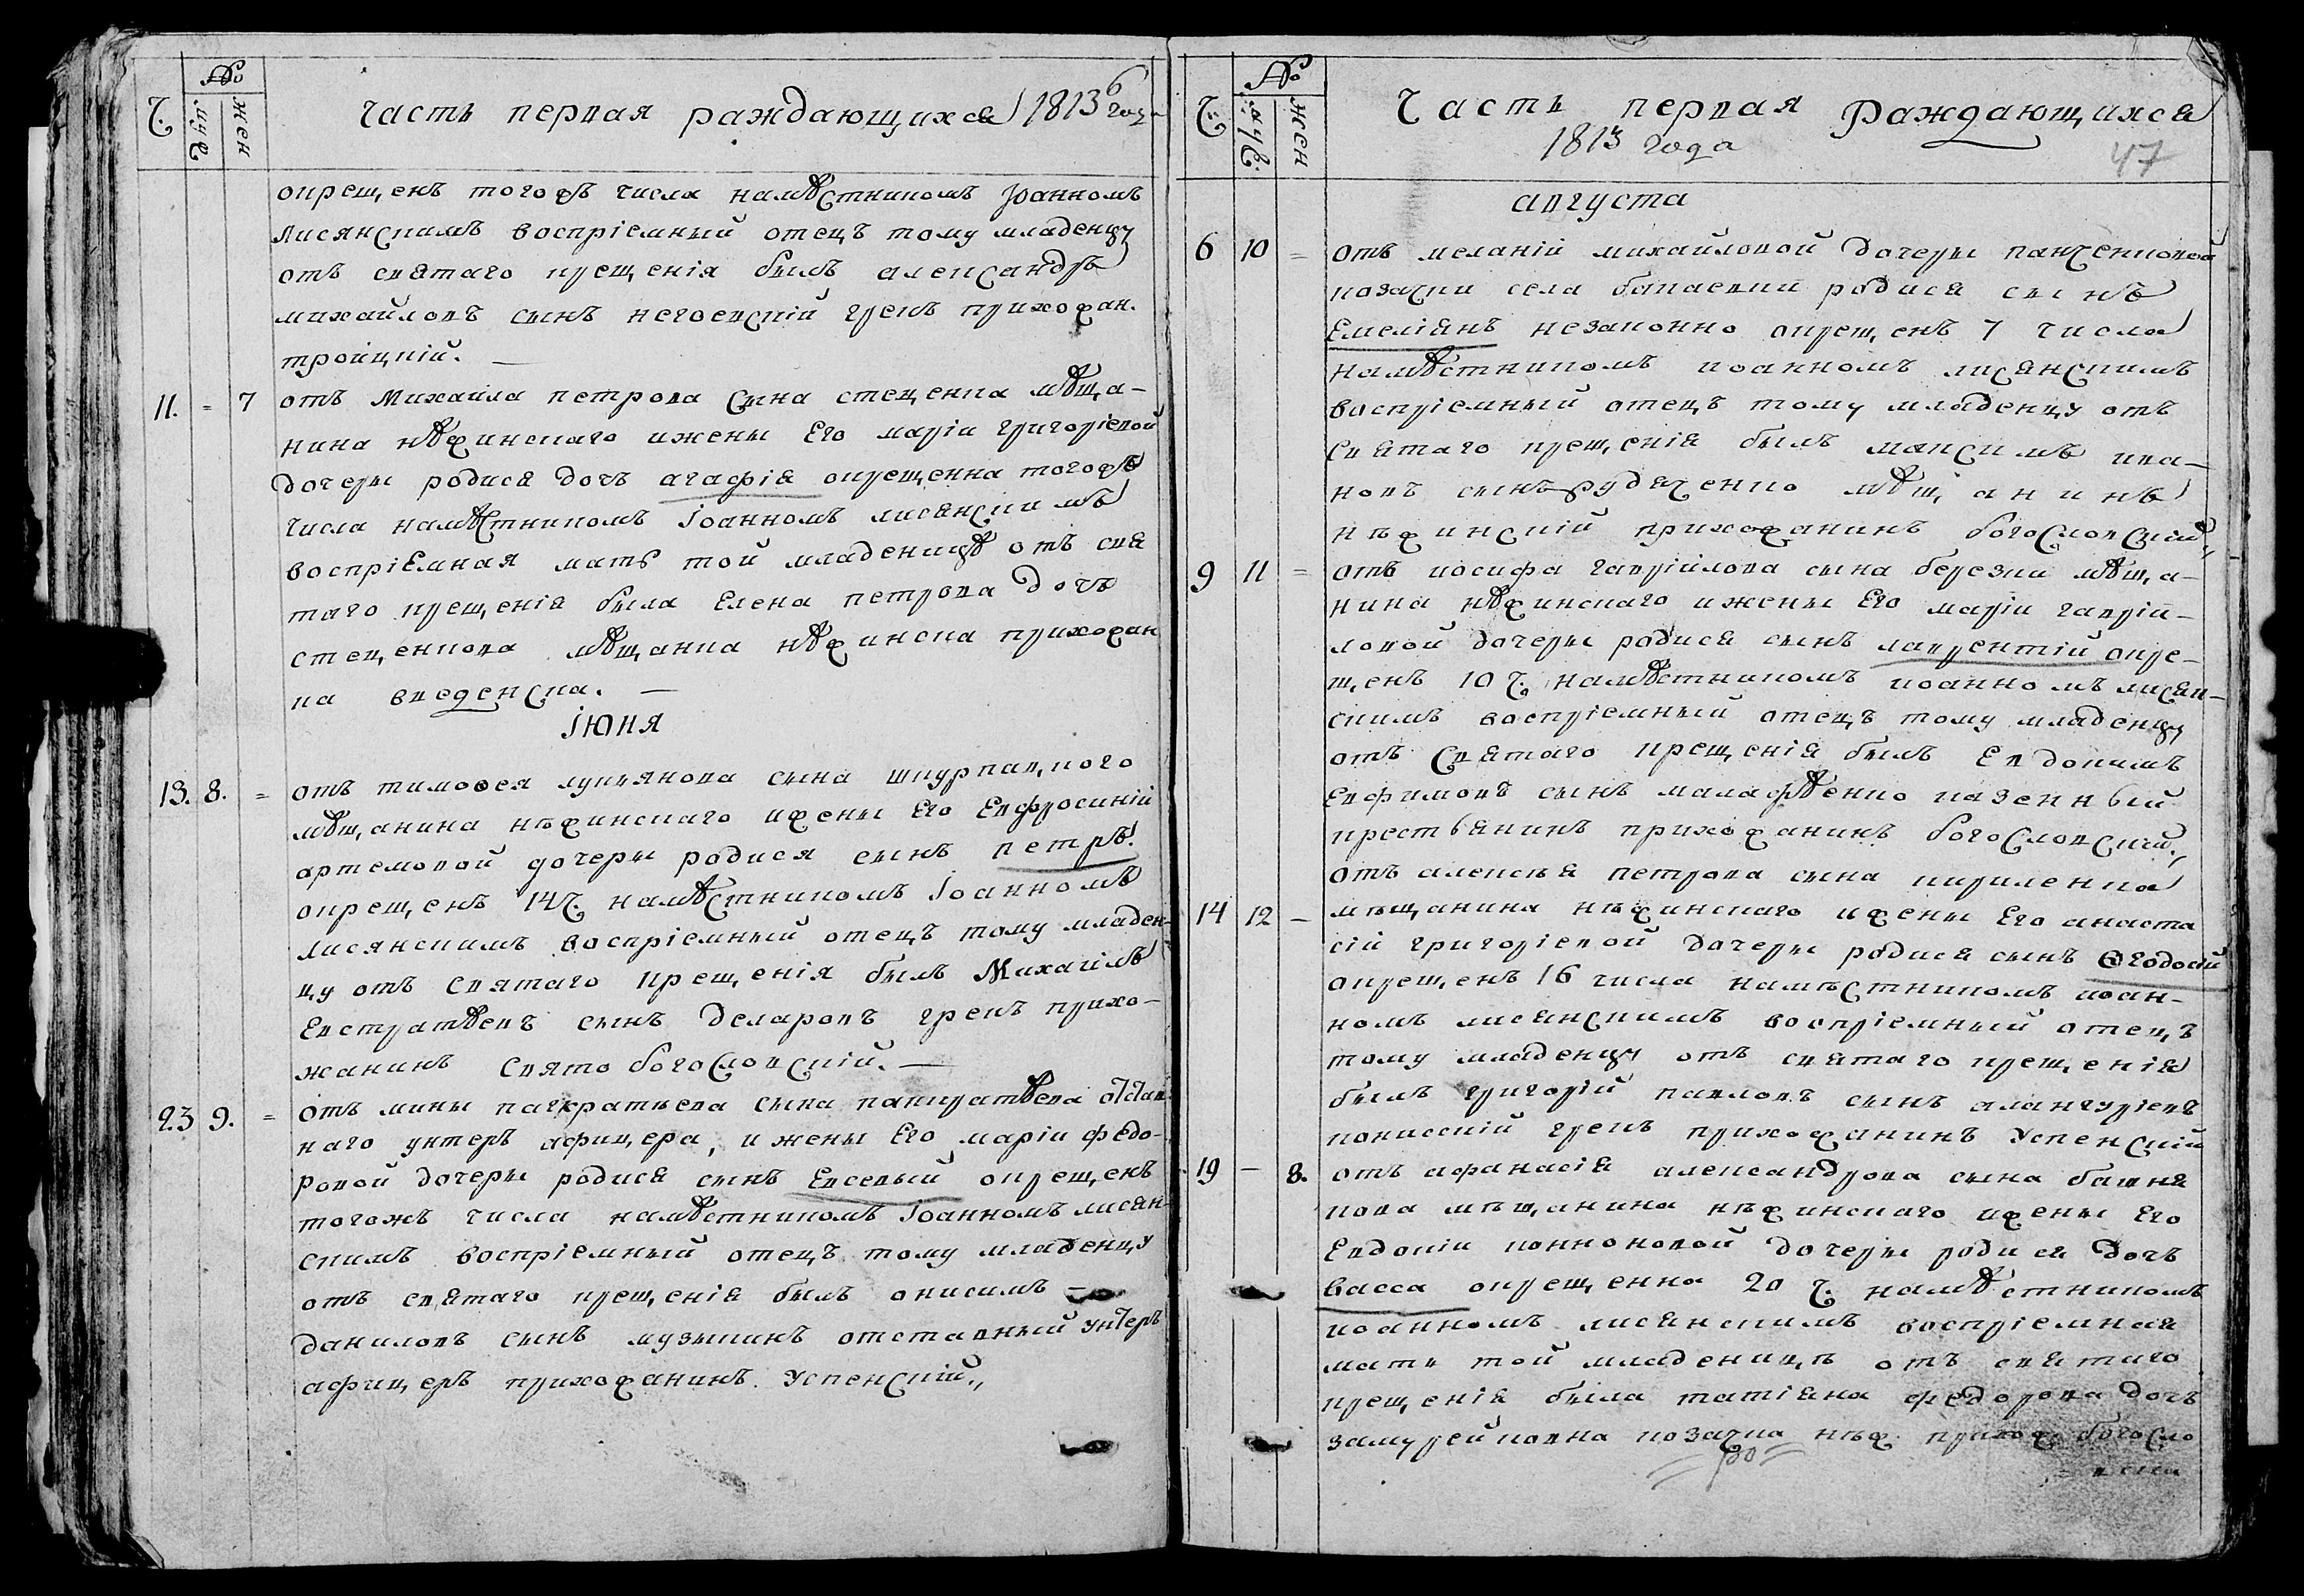 Ч.
№
муж
жен
часть первая раждающихся 1813 года
окрещенъ тогожъ числа намѣстникомъ Іоанномъ
Лисянскимъ воспріемный отецъ тому младенцу
отъ святаго крещенія былъ александръ
михайловъ сынъ грекъ прихожан.
тройцкій.
11. = 7 отъ Михаила петрова сына стеценка мѣща-
нина нѣжинскаго ижены Его маріи григоріевой
дочеры родися дочъ агафія окрещенна тогожъ
числа намѣстникомъ Іоанномъ лисянскимъ
воспріЕмная мать той младеницѣ отъ свя
таго крещенія была Елена петрова дочъ
стеценкова мѣщанка нѣжинска прихожан
ка введенска.
Іюня
13. 8. = отъ тимоѳея лукьянова сына
мѣщанина нѣжинскаго ижены Его Евфросиній
артемовой дочеры родися сынъ петръ.
окрещенъ 14 ч. намѣстникомъ Іоанномъ
лисянскимъ воспріемный отецъ тому младен-
цу отъ святаго крещенія былъ Михаилъ
Евстратѣевъ сынъ деларовъ грекъ прихо-
жанинъ свято богословскій.
23 9. = отъ мины панкратьева сына панкратѣева отстав
наго унтеръ афицера, ижены Его маріи федо-
ровой дочеры родися сынъ Евсевый окрещенъ
тогожъ числа намѣстникомъ Іоанномъ лисян-
скимъ воспріемный отецъ тому младенцу
отъ святаго крещенія былъ онисимъ
даниловъ сынъ музыкинъ отставный унтеръ
афицеръ прихожанинъ Успенскій.,
Ч.
№
муж.
жен
Часть первая раждающихся
1813 года
47
августа
6 10 = отъ меланій михайловой дочеры панченковой
козачки села бакаевки родися сынъ
Емеліянъ незаконно окрещенъ 7 числа
намѣстникомъ иоанномъ лисянскимъ
воспріемный отецъ тому младенцу отъ
святаго крещенія былъ максимъ ива-
новъ сынъ рудченко мѣщанинъ
нѣжинскій прихожанинъ богословскій,,
9 11 = отъ иосифа гавріилова сына березки мѣща-
нина нѣжинскаго ижены Его маріи гаврій-
ловой дочеры родися сынъ лаврентій окре-
щенъ 10 ч. намѣстникомъ иоанномъ лисян-
скимъ воспріемный отецъ тому младенцу
отъ святаго крещенія былъ Евдокимъ
Евфимовъ сынъ малафѣенко казенный
крестьянинъ прихожанинъ богословскій.,
отъ алексѣя петрова сына кириленка
14 12 – мѣщанина нѣжинскаго ижены Его анаста
сій григоріевой дочеры родися сынъ Ѳеодосій
окрещенъ 16 числа намѣстникомъ иоан-
номъ лисянскимъ воспріемный отецъ
тому младенцу отъ святаго крещенія
былъ григорій павловъ сынъ
грекъ прихожанинъ Успенскій
19 – 8. отъ афанасія александрова сына башня
кова мѣщанина нѣжинскаго ижены Его
Евдокіи дочеры родися дочъ
васса окрещенна 20 ч. намѣстникомъ
иоанномъ лисянскимъ воспріемная
мать той младеницѣ отъ святаго
крещенія была татіяна федорова дочъ
козачка нѣж. прихож. богосло
вска